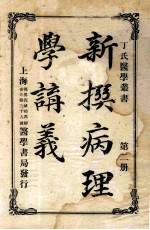 丁氏醫學叢書 第二册
新撰病理
學講義
上海
醫學書局發行